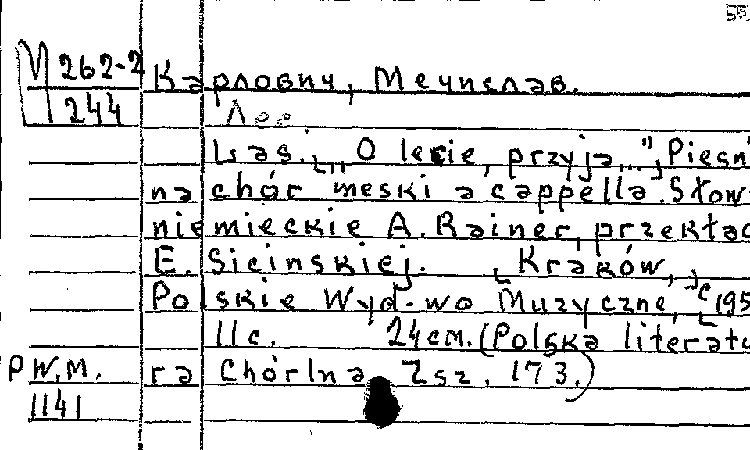 М 262-2
244
Карлович, Мечислав.
Лес
Las. „O lesie, przyja..." Pieśń
na chór męski a cappella. Słow
niemieckie A. Rainer, przekład
E. Sicinskiej. [Kraków,]
Polskie Wyd-wo Muzyczne, [c195
11c. 24см. (Polska literatu
ra Chórlna Zsz. 173.)
P W.M.
1141